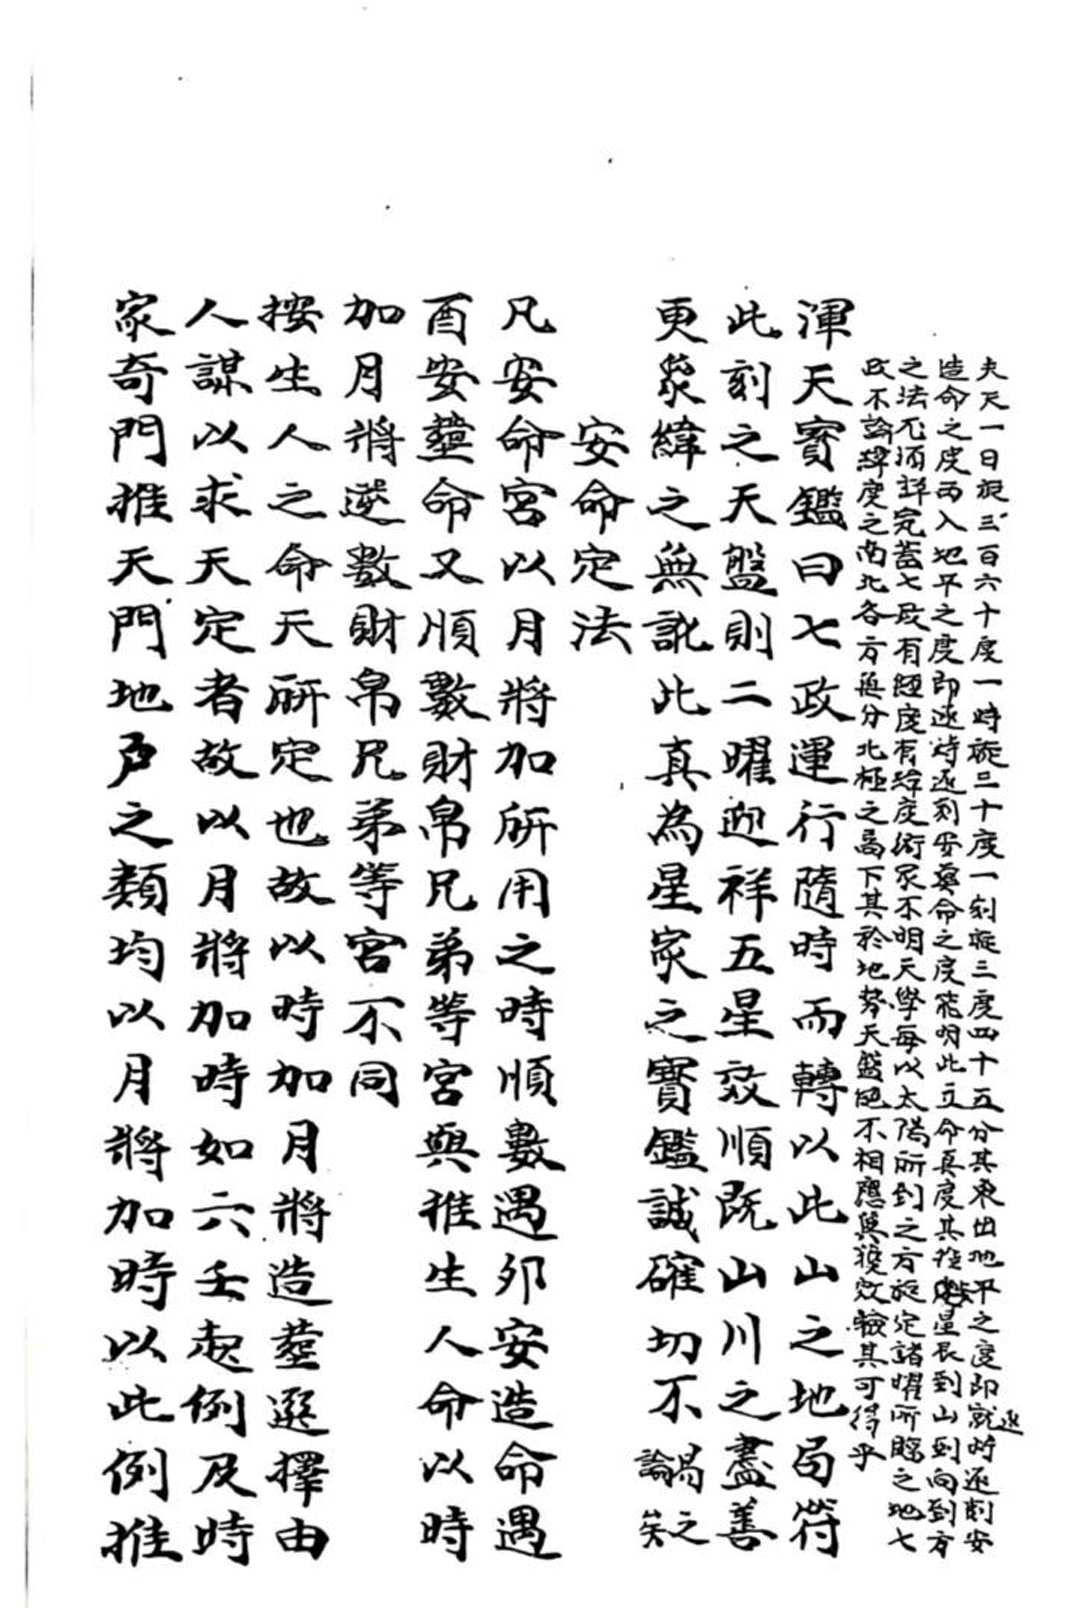 夫天一日旋三百六十度一時旋三十度一刻旋三度四十五分其東出地平之度即就時逐刻安
造命之度西入地平之度即逐時逐刻安葬命之度能明此立命真度其推星辰到山到向到方
之法尤須詳究蓋七政有經度有緯度術家不明天學每以太陽所到之方旋定諸曜所臨之地七
政不論緯度之南北各方無分北極之高下其於地勢天盤絕不相應無獲效驗其可得乎
渾天寶鑑曰七政運行隨時而轉以此山之地局符
此刻之天盤則二曜迎祥五星效順既山川之盡善
更象緯之無訛此真為星家之寶鑑誠確切不易之論矣
安命定法
凡安命宮以月將加所用之時順數遇卯安造命遇
酉安塟命又順數財帛兄弟等宮與推生人命以時
加月將逆數財帛兄弟等宮不同
按生人之命天所定也故以時加月將造塟選擇由
人謀以求天定者故以月將加時如六壬起例及時
家奇門推天門地戶之類均以月將加時以此例推